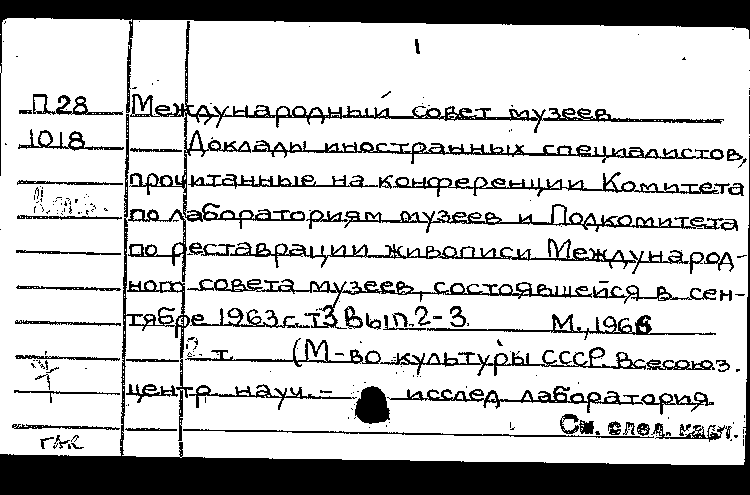 1
П28 Международный совет музеев
1018 Доклады иностранных специалистов,
прочитанные на конференции Комитета
по лабораториям музеев и Подкомитета
по реставрации живописи Международ-
ного совета музеев, состоявшейся в сен-
тябре 1963 г. т3 Вып. 2-3 М., 1966
2 т. (М-во культуры СССР. Всесоюз.
центр науч.- исслед. лаборатория
См. след. карт.